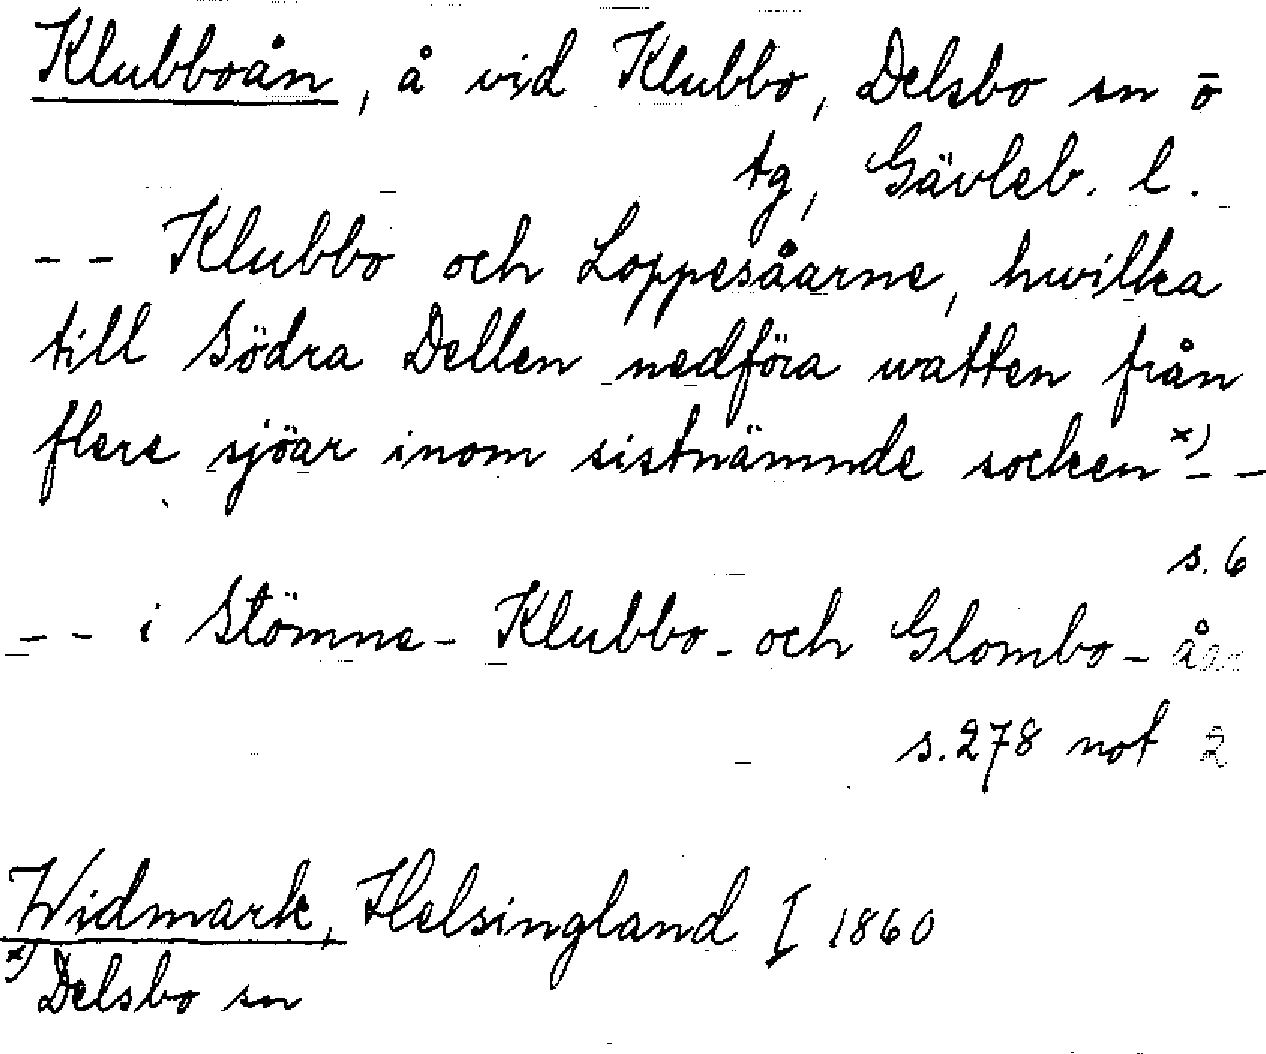 Klubboån, å vid Klubbo, Delsbo sn ö
tg, Gävleb. l.
-- Klubbo och Loppesåarne, hwilka
till Södra Dellen nedföra watten från
flere sjöar inom sistnämnde socken x) --
s. 6
-- i Stömne- Klubbo- och Glombo- åar
s. 278 not 2
Widmark, Helsingland I 1860
x) Delsbo sn